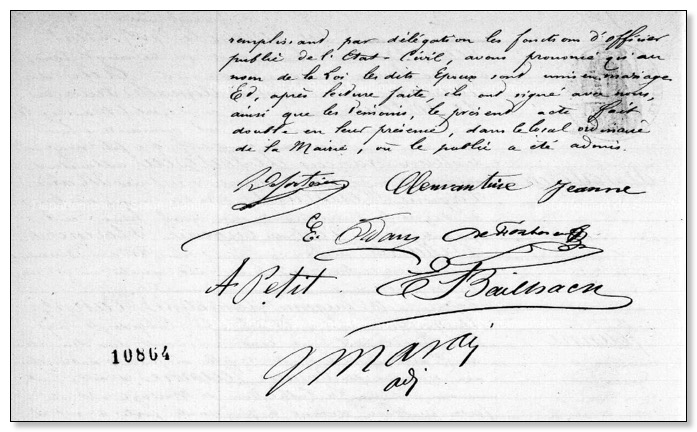 remplissant par délégation les fonctions d'officier
public de l'Etat-Civil, avons prononcé qu'au
nom de la Loi les dits Epoux sont unis en mariage
Et, après lecture faite, ils ont signé avec nous,
ainsi que les témoins, le présent acte fait
double en leur présence, dans le local ordinaire
de la Mairie, où le public a été admis.
Clemantine Jeanne
E. Odam
A Petit E Bailhaen
10864
adj